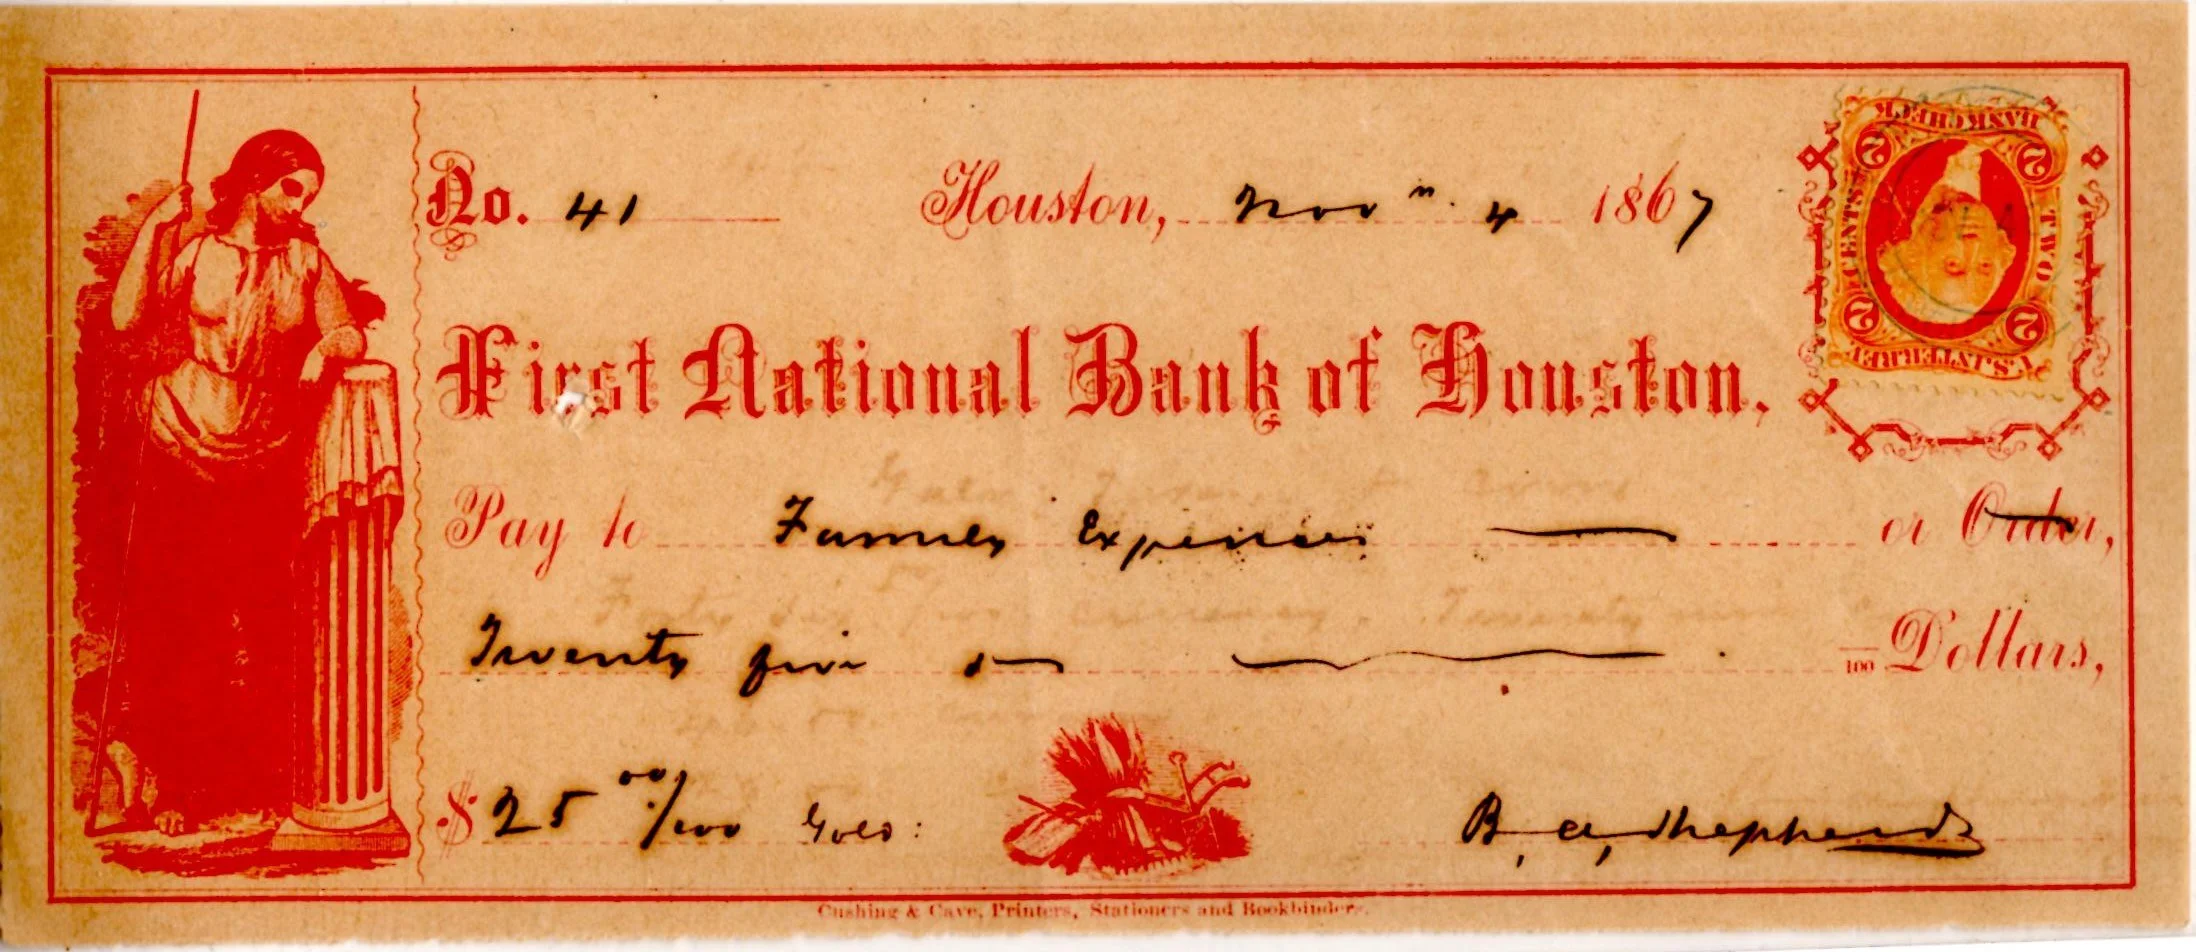 No. 41 Houston, Novm. 4 1867
U.S. INTER. REV.
2 2
TWO CENTS
2 2
BANK CHECK
First National Bank of Houston,
Pay to Family Expenses or Order,
Twenty five /100 Dollars,
$ 25 00/100 Gold:
B. A. Shepherd
Cushing & Cave, Printers, Stationers and Bookbinders.